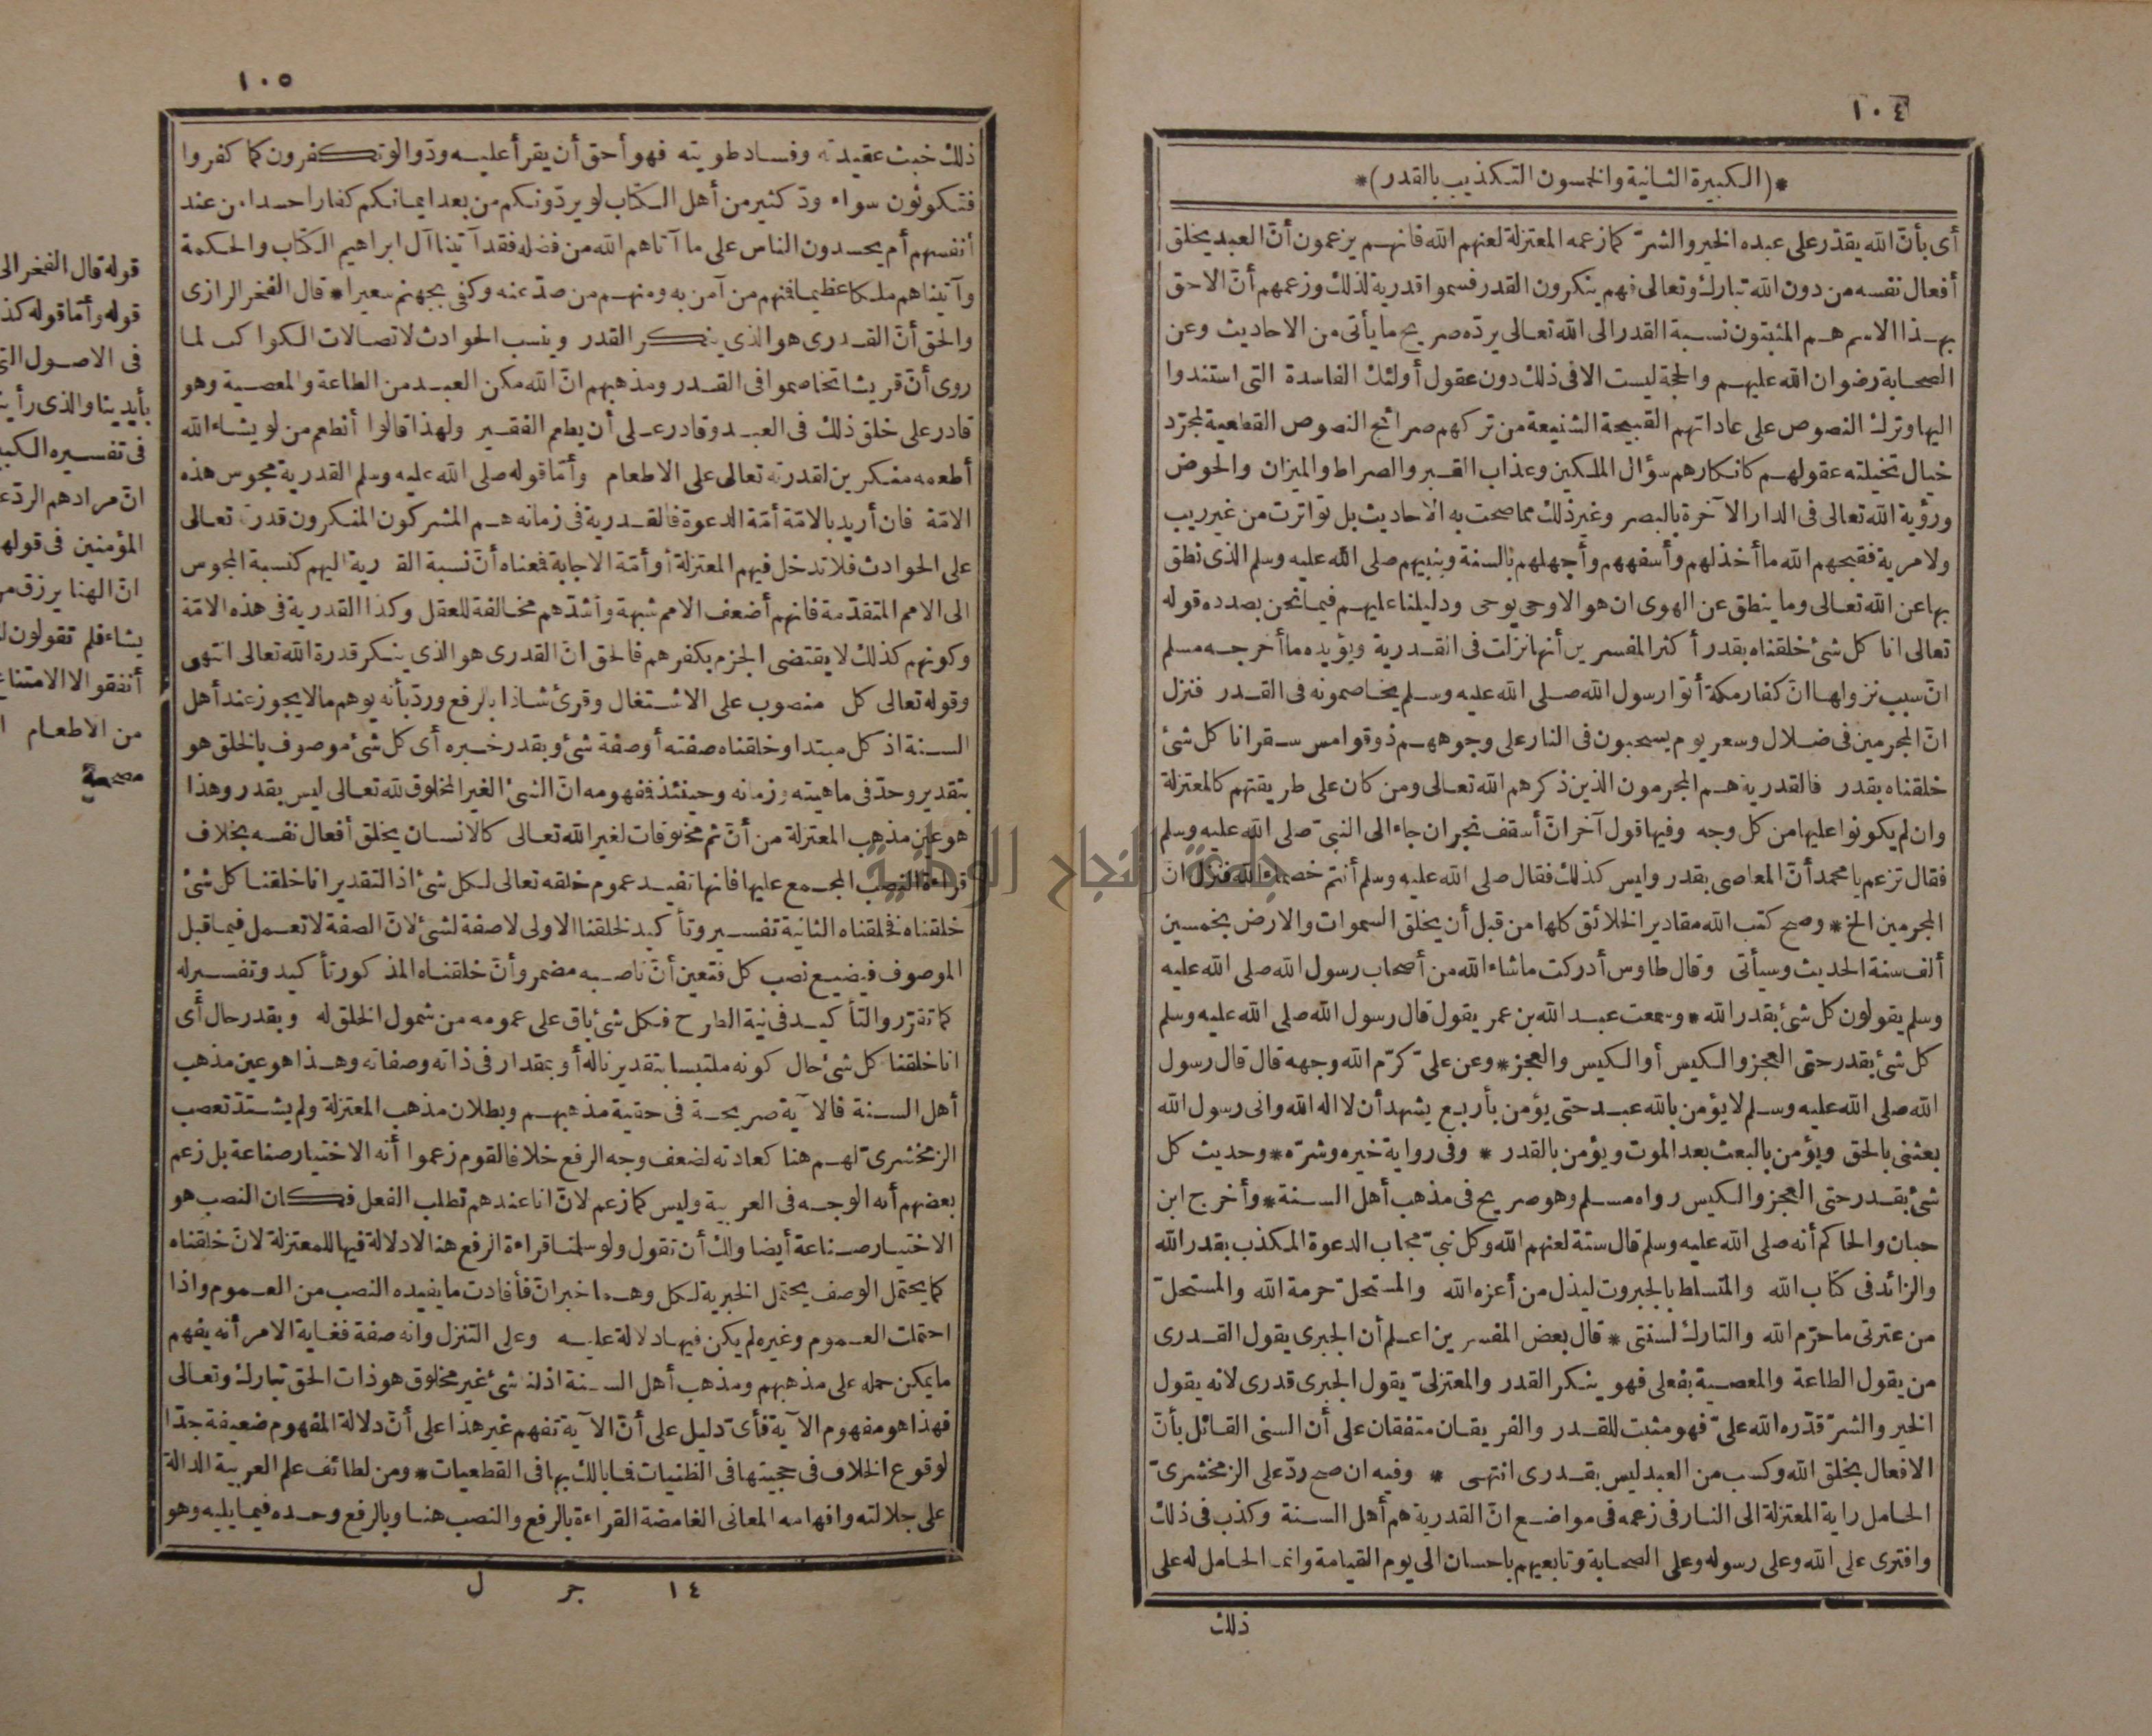 ١٠٤
*(الكبيرة الثانية والخمسون التكذيب بالقدر)*
أى بأنّ الله يقدّر على عبده الخير والشرّ كما زعمه المعتزلة لعنهم الله فانهم يزعمون أنّ العبد يخلق
أفعال نفسه من دون الله تبارك وتعالى فهم ينكرون القدر فسموا قدرية لذلك وزعمهم أنّ الاحق
بهذا الاسم هم المثبتون نسبة القدر الى الله تعالى يردّه صريح ما يأتى من الاحاديث وعن
الصحابة رضوان الله عليهم والحجة ليست الا فى ذلك دون عقول أولئك الفاسدة التى استندوا
اليها وترك النصوص على عاداتهم القبيحة الشنيعة من تركهم صرائح النصوص القطعية لمجرّد
خيال تخيلته عقولهم كانكارهم سؤال الملكين وعذاب القبر والصراط والميزان والحوض
ورؤية الله تعالى فى الدار الآخرة بالبصر وغير ذلك مما صحت به الاحاديث بل تواترت من غير ريب
ولا مرية فقبحهم الله ما أخذلهم وأسفههم وأجهلهم بالسنة وبنبيهم صلى الله عليه وسلم الذى نطق
بها عن الله تعالى وما ينطق عن الهوى ان هو الا وحى يوحى ودليلنا عليهم فيما نحن بصدده قوله
تعالى انا كل شئ خلقناه بقدر أكثر المفسرين أنها نزلت فى القدرية ويؤيده ما أخرجه مسلم
انّ سبب نزولها انّ كفار مكة أتوا رسول الله صلى الله عليه وسلم يخاصمونه فى القدر فنزل
انّ المجرمين فى ضلال وسعر يوم يسحبون فى النار على وجوههم ذوقوا مس سقر انا كل شئ
خلقناه بقدر فالقدرية هم المجرمون الذين ذكرهم الله تعالى ومن كان على طريقتهم كالمعتزلة
وان لم يكونوا عليها من كل وجه وفيها قول آخر انّ أسقف نجران جاء الى النبىّ صلى الله عليه وسلم
فقال تزعم يا محمد أنّ المعاصى بقدر وليس كذلك فقال صلى الله عليه وسلم أنتم خصماء الله فنزل انّ
المجرمين الخ * وصح كتب الله مقادير الخلائق كلها من قبل أن يخلق السموات والارض بخمسين
ألف سنة الحديث وسيأتى وقال طاوس أدركت ما شاء الله من أصحاب رسول الله صلى الله عليه
وسلم يقولون كل شئ بقدر الله * وسمعت عبد الله بن عمر يقول قال رسول الله صلى الله عليه وسلم
كل شئ بقدر حتى العجز والكيس أو الكيس والعجز * وعن علىّ كرّم الله وجهه قال قال رسول
الله صلى الله عليه وسلم لا يؤمن بالله عبد حتى يؤمن بأربع يشهد أن لا اله الا الله وانى رسول الله
بعثنى بالحق ويؤمن بالبعث بعد الموت ويؤمن بالقدر * وفى رواية خيره وشرّه * وحديث كل
شئ بقدر حتى العجز والكيس رواه مسلم وهو صريح فى مذهب أهل السنة * وأخرج ابن
حبان والحاكم أنه صلى الله عليه وسلم قال ستة لعنهم الله وكل نبىّ مجاب الدعوة المكذب بقدر الله
والزائد فى كتاب الله والمتسلط بالجبروت ليذل من أعزه الله والمستحلّ حرمة الله والمستحلّ
من عترتى ما حرّم الله والتارك لسنتى * قال بعض المفسرين اعلم أن الجبرى يقول القدرى
من يقول الطاعة والمعصية بفعلى فهو ينكر القدر والمعتزلىّ يقول الجبرى قدرى لانه يقول
الخير والشرّ قدّره الله علىّ فهو مثبت للقدر والفريقان متفقان على أن السنى القائل بأنّ
الافعال بخلق الله وكسب من العبد ليس بقدرى انتهى * وفيه ان صح ردّ على الزمخشرىّ
الحامل راية المعتزلة الى النار فى زعمه فى مواضع انّ القدرية هم أهل السنة وكذب فى ذلك
وافترى على الله وعلى رسوله وعلى الصحابة وتابعيهم باحسان الى يوم القيامة وانما الحامل له على
ذلك
١٠٥
ذلك خبث عقيدته وفساد طويته فهو أحق أن يقرأ عليه ودّوا لو تكفرون كما كفروا
فتكونون سواء ودّ كثير من أهل الكتاب لو يردّونكم من بعد ايمانكم كفارا حسدا من عند
أنفسهم أم يحسدون الناس على ما آتاهم الله من فضله فقد آتينا آل ابراهيم الكتاب والحكمة
وآتيناهم ملكا عظيما فمنهم من آمن به ومنهم من صدّ عنه وكفى بجهنم سعيرا * قال الفخر الرازى
والحق أنّ القدرى هو الذى ينكر القدر وينسب الحوادث لاتصالات الكواكب لما
روى أنّ قريشا تخاصموا فى القدر ومذهبهم انّ الله مكن العبد من الطاعة والمعصية وهو
قادر على خلق ذلك فى العبد وقادر على أن يطعم الفقير ولهذا قالوا أنطعم من لو يشاء الله
أطعمه منكرين لقدرته تعالى على الاطعام وأمّا قوله صلى الله عليه وسلم القدرية مجوس هذه
الامّة فان أريد بالامّة أمّة الدعوة فالقدرية فى زمانه هم المشركون المنكرون قدرته تعالى
على الحوادث فلا تدخل فيهم المعتزلة أو أمّة الاجابة فمعناه أنّ نسبة القدرية اليهم كنسبة المجوس
الى الامم المتقدّمة فانهم أضعف الامم شبهة وأشدّهم مخالفة للعقل وكذا القدرية فى هذه الامّة
وكونهم كذلك لا يقتضى الجزم بكفرهم فالحق انّ القدرى هو الذى ينكر قدرة الله تعالى انتهى
وقوله تعالى كل منصوب على الاشتغال وقرئ شاذا بالرفع وردّ بأنه يوهم ما لا يجوز عند أهل
السنة اذ كل مبتدا وخلقناه صفته أو صفة شئ وبقدر خبره أى كل شئ موصوف بالخلق هو
بتقدير وحدّ فى ماهيته وزمانه وحينئذ فمفهومه انّ الشئ الغير المخلوق لله تعالى ليس بقدر وهذا
هو عين مذهب المعتزلة من أنّ ثم مخلوقات لغير الله تعالى كالانسان يخلق أفعال نفسه بخلاف
قراءة النصب المجمع عليها فانها تفيد عموم خلقه تعالى لكل شئ اذ التقدير انا خلقنا كل شئ
خلقناه فخلقناه الثانية تفسير وتأكيد لخلقنا الاولى لا صفة لشئ لانّ الصفة لا تعمل فيما قبل
الموصوف فيضيع نصب كل فتعين أنّ ناصبه مضمر وأنّ خلقناه المذكور تأكيد وتفسير له
كما تقرّر والتأكيد فى نية الطرح فكل شئ باق على عمومه من شمول الخلق له وبقدر حال أى
انا خلقنا كل شئ حال كونه ملتبسا بتقديرنا له أو بمقدار فى ذاته وصفاته وهذا هو عين مذهب
أهل السنة فالآية صريحة فى حقية مذهبهم وبطلان مذهب المعتزلة ولم يشتدّ تعصب
الزمخشرىّ لهم هنا كعادته لضعف وجه الرفع خلافا لقوم زعموا أنه الاختيار صناعة بل زعم
بعضهم أنه الوجه فى العربية وليس كما زعم لانّ انا عندهم تطلب الفعل فكان النصب هو
الاختيار صناعة أيضا ولك أن تقول ولو سلمنا قراءة الرفع هنا لا دلالة فيها للمعتزلة لانّ خلقناه
كما يحتمل الوصف يحتمل الخبرية لكل وهما خبر انّ فأفادت ما يفيده النصب من العموم واذا
احتملت العموم وغيره لم يكن فيها دلالة عليه وعلى التنزل وانه صفة فغاية الامر أنه يفهم
ما يمكن حمله على مذهبهم ومذهب أهل السنة اذ لنا شئ غير مخلوق هو ذات الحق تبارك وتعالى
فهذا هو مفهوم الآية فأىّ دليل على أنّ الآية تفهم غير هذا على أنّ دلالة المفهوم ضعيفة جدّا
لوقوع الخلاف فى حجيتها فى الظنيات فما بالك بها فى القطعيات * ومن لطائف علم العربية الدالة
على جلالته وافهامه المعانى الغامضة القراءة بالرفع والنصب هنا وبالرفع وحده فيما يليه وهو
١٤ جر ل
قوله قال الفخر الى
قوله وأمّا قوله كذا
فى الاصول التى
بأيدينا والذى رأيناه
فى تفسيره الكبير
انّ مرادهم الردّ على
المؤمنين فى قولهم
انّ الهنا يرزق من
يشاء فلم تقولون لنا
أنفقوا الا الامتناع
من الاطعام اه
مصححه
جامعة النجاح الوطنية